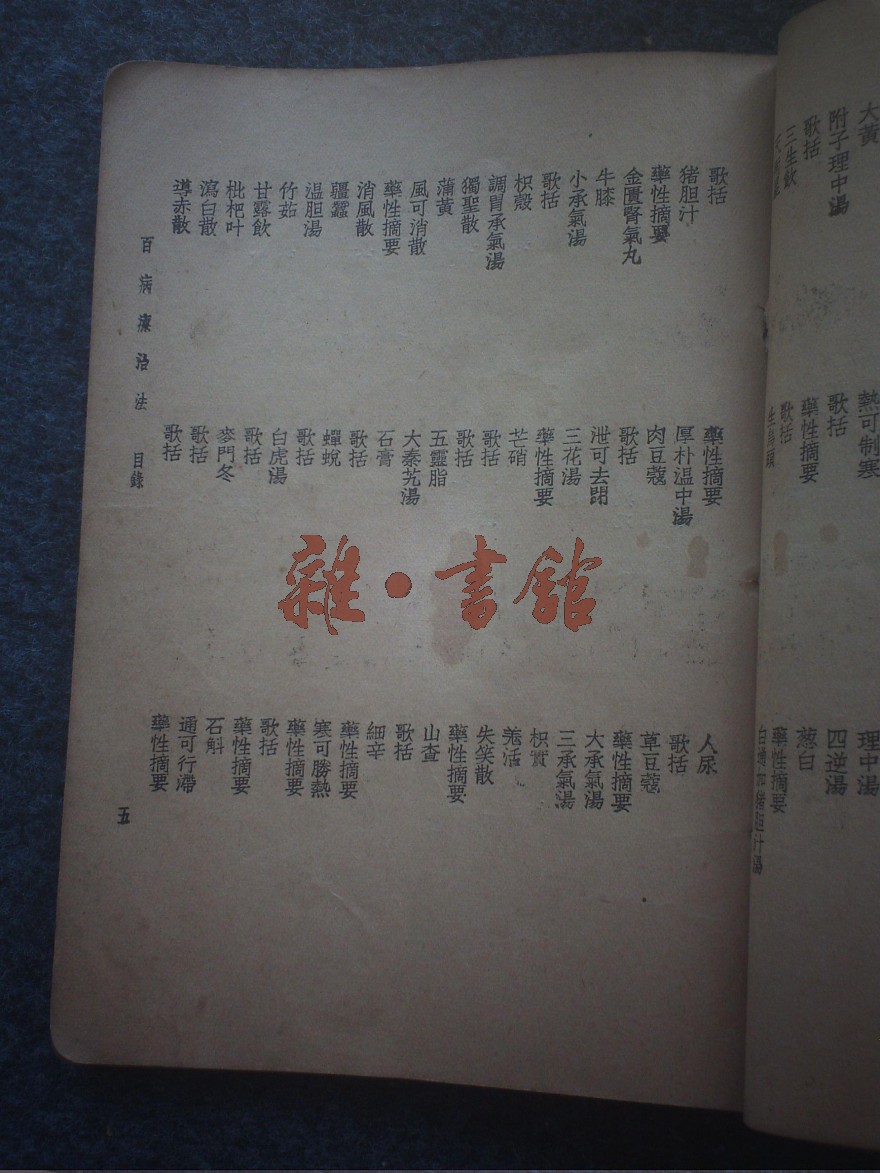 大黃
附子理中湯
歌括
三生飲
熱可制寒
歌括
藥性摘要
歌括
理中湯
四逆湯
葱白
藥性摘要
白通加猪胆汁湯
歌括
猪胆汁
藥性摘要
金匱腎氣丸
牛膝
小承氣湯
歌括
枳殼
調胃承氣湯
獨聖散
蒲黃
風可消散
藥性摘要
消風散
殭蠶
温胆湯
竹茹
甘露飲
枇杷叶
瀉白散
導赤散
藥性摘要
厚朴温中湯
肉豆蔻
歌括
泄可去閉
三花湯
藥性摘要
芒硝
歌括
歌括
五靈脂
大秦艽湯
石膏
歌括
蟬蛻
歌括
白虎湯
歌括
麥門冬
歌括
歌括
人尿
歌括
草豆蔻
藥性摘要
大承氣湯
三承氣湯
枳實
羌活
失笑散
藥性摘要
山查
歌括
細辛
藥性摘要
寒可勝熱
藥性摘要
歌括
藥性摘要
石斛
通可行滯
藥性摘要
百病療治法 目錄 五
雜·書館